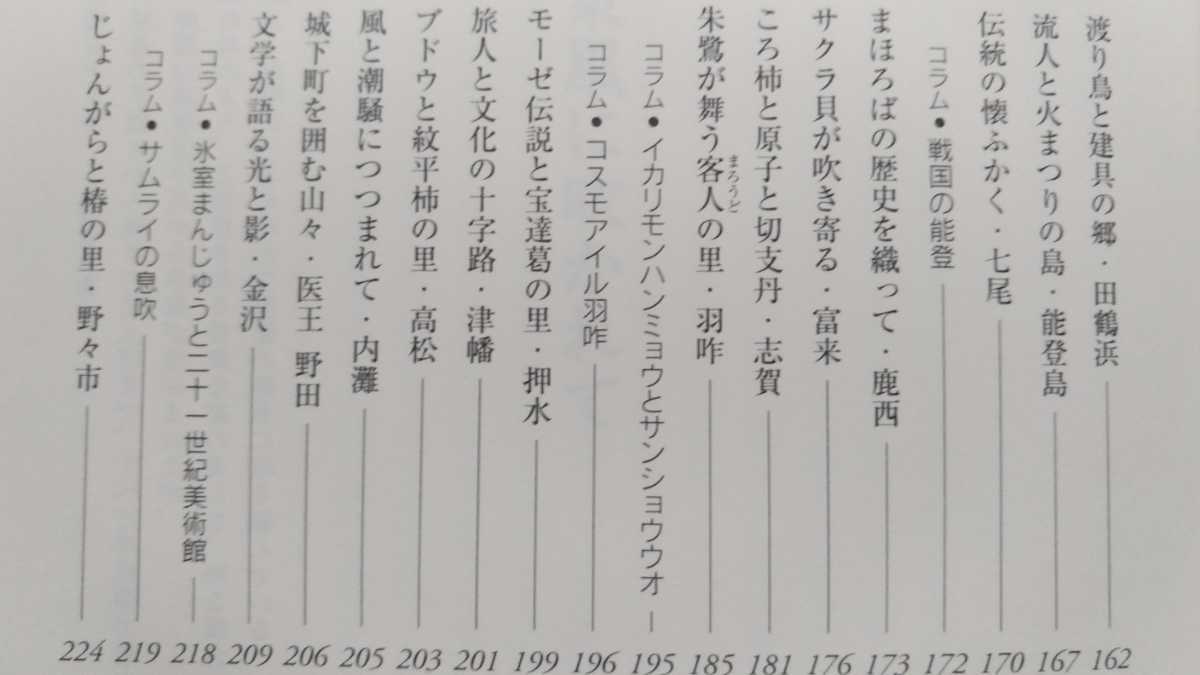 渡り鳥と建具の郷・田鶴浜 162
流人と火まつりの島・能登島 167
伝統の懐ふかく・七尾 170
コラム●戦国の能登 172
まほろばの歴史を織って・鹿西 173
サクラ貝が吹き寄る・富来 176
ころ柿と原子と切支丹・志賀 181
朱鷺が舞う客人の里・羽咋 185
まろうど
コラム●イカリモンハンミョウとサンショウウオ 195
コラム●コスモアイル羽咋 196
モーゼ伝説と宝達葛の里・押水 199
旅人と文化の十字路・津幡 201
ブドウと紋平柿の里・高松 203
風と潮騒につつまれて・内灘 205
城下町を囲む山々・医王 野田 206
文学が語る光と影・金沢 209
コラム●氷室まんじゅうと二十一世紀美術館 218
コラム●サムライの息吹 219
じょんがらと椿の里・野々市 224